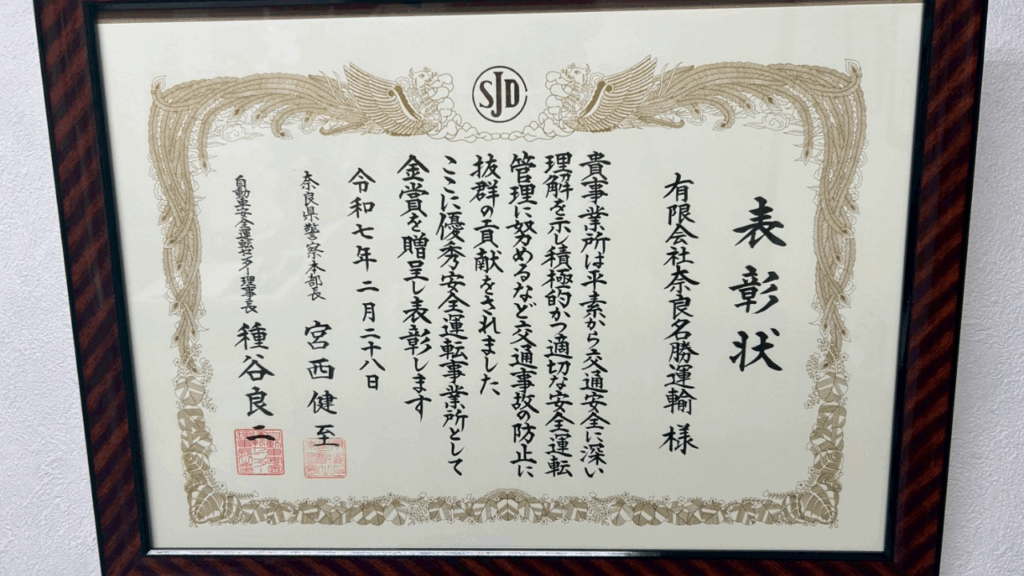 SJD
表彰状
有限会社奈良名勝運輸 様
貴事業所は平素から交通安全に深い
理解を示し積極的かつ適切な安全運転
管理に努めるなど交通事故の防止に
抜群の貢献をされました
ここに優秀安全運転事業所として
金賞を贈呈し表彰します
令和七年二月二十八日
奈良県警察本部長 宮西健至
自動車安全運転センター理事長 種谷良二